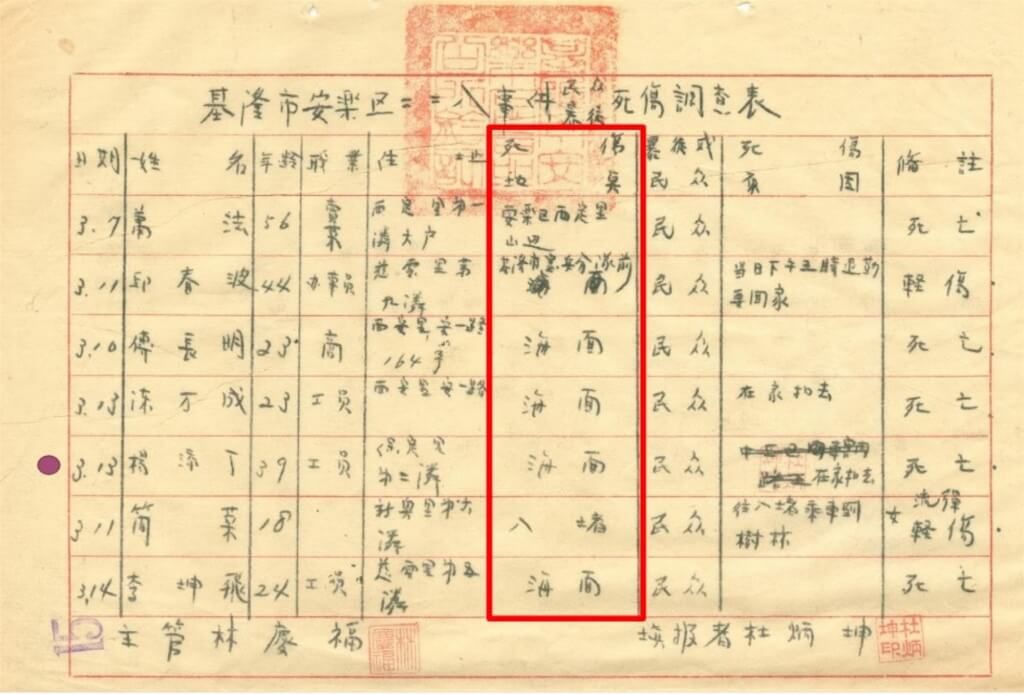 基隆市安樂区二二八事件民众暴徒死傷調查表
日期 姓名 年齡 職業 住址 死傷地點 暴徒或民众 死傷原因 備註
3.7 萬法 56 賣菜 西定里第一鄰大戶 安樂区西定里山边 民众 死亡
3.11 邱春波 44 办事員 慈雲里第九鄰 基隆市憲兵分隊前 民众 当日下午五時退勤要回家 軽傷
3.10 傅長明 23 商 西安里安一路164号 海面 民众 死亡
3.13 万成 23 工員 西安里安一路 海面 民众 在家扣去 死亡
3.13 楊添丁 39 工員 保定里第二鄰 海面 民众 在家扣去 死亡
3.11 簡菜 18 社奥里第六鄰 八堵 民众 往八堵乘車到樹林 女 流弾軽傷
3.14 李坤飛 24 工員 慈雲里第五鄰 海面 民众 死亡
主管林慶福 填报者杜炳坤
杜炳坤印